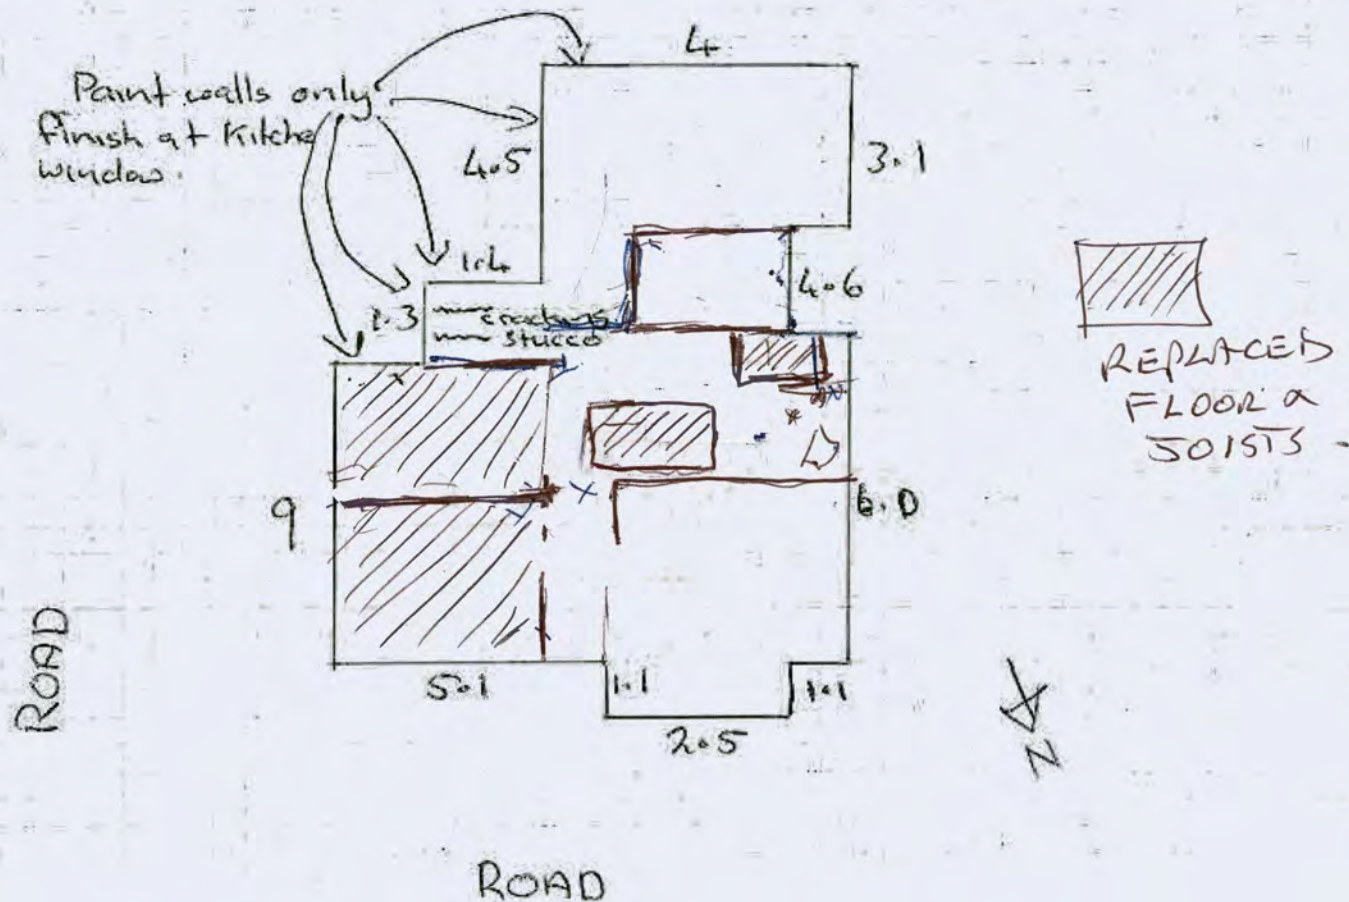 4
Paint walls only
Finish at Kitche
window.
4.5
3.1
1.4
4.6
1.3
cracking
stucco
REPLACED
FLOOR &
JOISTS
9
6.0
ROAD
5.1
1.1
1.1
2.5
N
ROAD